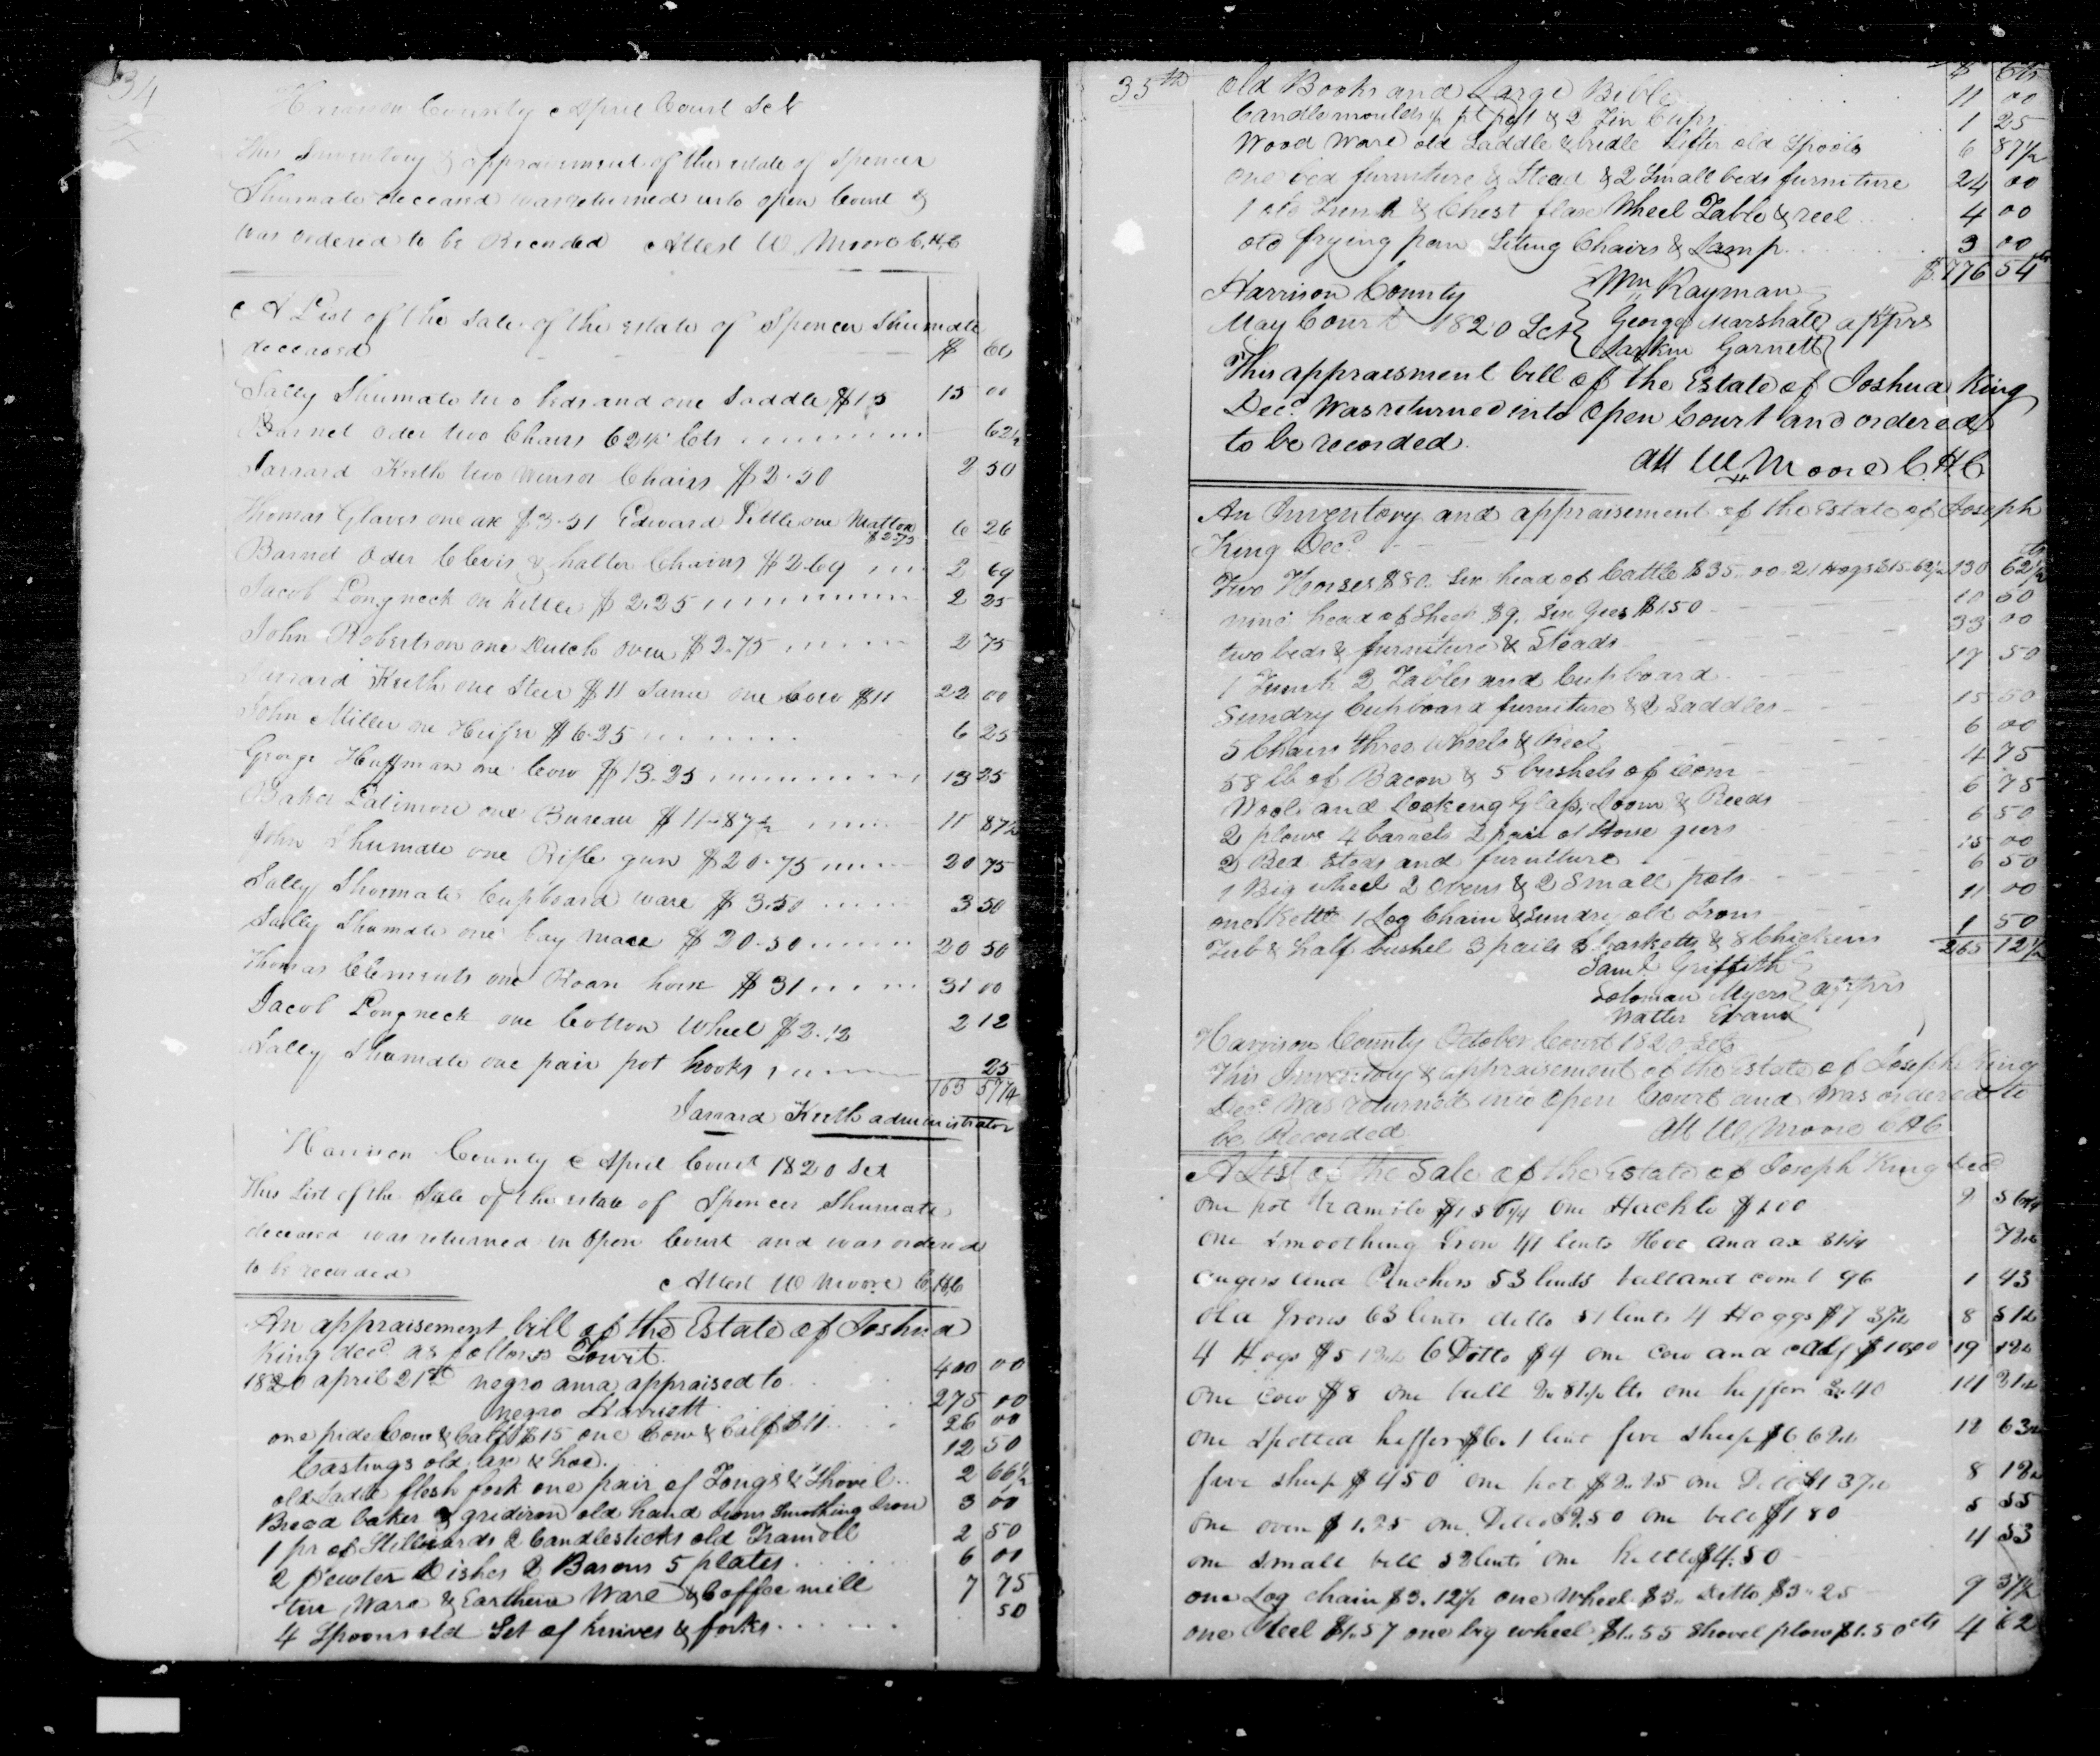 34
Harrison County April Court Sct
This Inventory & appraisement of the estate of Spencer
Shumate deceased was returned into open Court &
was ordered to be Recorded Attest W. Moore C,H,C
A List of the Sale of the estate of Spencer Shumate
deceased $ Cts
Sally Shumate two beds and one Saddle $15 15 00
Barnet Oder two Chairs 62½ Cts 62½
Jarrard Keith two Winsor Chairs $2.50 2 50
Thomas Glaves one axe $3.51 Edward Pettle one Mattox $2.75 6 26
Barnet Oder Clevis & halter Chains $2.69 2 69
Jacob Longneck one Kettle $2.25 2 25
John Robertson one Dutch oven $2.75 2 75
Jarrard Keith one Steer $11 Same one Cow $11 22 00
John Miller one Heifer $6.25 6 25
George Huffman one Cow $13.25 13 25
Baker Latimore one Bureau $11.87½ 11 87½
John Shumate one Rifle gun $20.75 20 75
Sally Shoemate Cupboard ware $3.50 3 50
Sally Shumate one bay mare $20.50 20 50
Thomas Clements one Roan horse $31 31 00
Jacob Longneck one Cotton Wheel $2.12 2 12
Sally Shumate one pair pot hooks 25
163 57¼
Jarrard Keith administrator
Harrison County April Court 1820 Sct
This List of the Sale of the estate of Spencer Shumate
deceased was returned in Open Court and was ordered
to be recorded Attest W Moore C,H,C
An appraisement bill of the Estate of Joshua
King decd. as follows Towit.
1820 april 21st negro anna appraised to 400 00
negro Harriett 275 00
one pide Cow & Calf $15 one Cow & Calf $11 26 00
Castings old axe & hoe. 12 50
old Ladle flesh fork one pair of Tongs & Shovel 2 66½
Bread baker & gridiron old hand Irons Smothing Iron 3 00
1 pr of Stilliards 2 Candlesticks old Tramell 2 50
2 Pewter Dishes 2 Basons 5 plates 6 00
tin Ware & Earthen Ware & Coffee mill 7 75
4 Spoons old Set of knives & forks 50
35th old Books and Large Bible $ 11 cts 00
Candlemoulds & 2 Tin Cups 1 25
Wood Ware old Saddle & bridle Sifter old Spools 6 87½
one bed furniture & Stead & 2 Small beds furniture 24 00
1 old Trunk & Chest flax Wheel Table & reel 4 00
old frying pan Seting Chairs & Lamp 3 00
$776 54
Harrison County Wm Kayman
May Court 1820 Sct George Marshall apprs
Larkin Garnett
This appraisment bill of the Estate of Joshua King
Decd. Was returned into Open Court and ordered
to be recorded.
Att W Moore C.H.C
An Inventory and appraisement of the Estate of Joseph
King Decd.
Two Horses $80. Six head of Cattle $35.00. 21 Hogs $15.62½ 130 62½
nine head of Sheep $9. Six Gees $1.50 10 50
two beds & furniture & Steads 33 00
1 Trunk 2 Tables and Cupboard 17 50
Sundry Cupboard furniture & 2 Saddles 15 50
5 Chairs three wheels & Reel 6 00
58 lb of Bacon & 5 bushels of Corn 4 75
Wool and Looking Glass, Loom & Reeds 6 75
2 plows 4 barrels 2 pair of Horse geers 6 50
2 Bed Steds and furniture 15 00
1 Big wheel 2 Ovens & 2 Small pots 6 50
one Kettle 1 Log Chain & Sundry old Irons 11 00
Tub & half bushel 3 pails 3 Casketts & 8 Chickens 1 50
265 12½
Saml. Griffith
Soloman Myers apprs
Walter Evans
Harrison County October Court 1820 Sct
This Inventory & appraisement of the Estate of Joseph King
Decd. Was returned into Open Court and Was ordered to
be Recorded Att W Moore C H C
A List of the Sale of the Estate of Joseph King Decd
One pot tramile $1 56¼ One Hackle $1.00 2 56¼
One Smoothing Iron 41 Cents Hoe and ax 31¼ 72¼
augers and Pinchers 53 Cents ball and 96 1 43
Old Irons 63 Cents ditto 51 Cents 4 Hoggs $7 37½ 8 51½
4 Hogs $5 12½ 6 Ditto $4 one Cow and Calf $10.00 19 12½
One Cow $8 One bull 2.81½ Cts one heffer 3.40 14 21½
One Spotted heffer $6.1 Cent five Sheep $6 62½ 12 63½
five sheep $4 50 one pot $2.25 one Ditto $1 37½ 8 12½
One oven $1.25 One Ditto $2.50 One bell $1 80 5 55
one small bell 52 Cents One Kettle $4.50 4 53
one Log chain $3.12½ one Wheel $3. Ditto $3.25 9 37½
one Reel $1.57 one big wheel $1.55 Shovel plow $1.50 cts 4 62